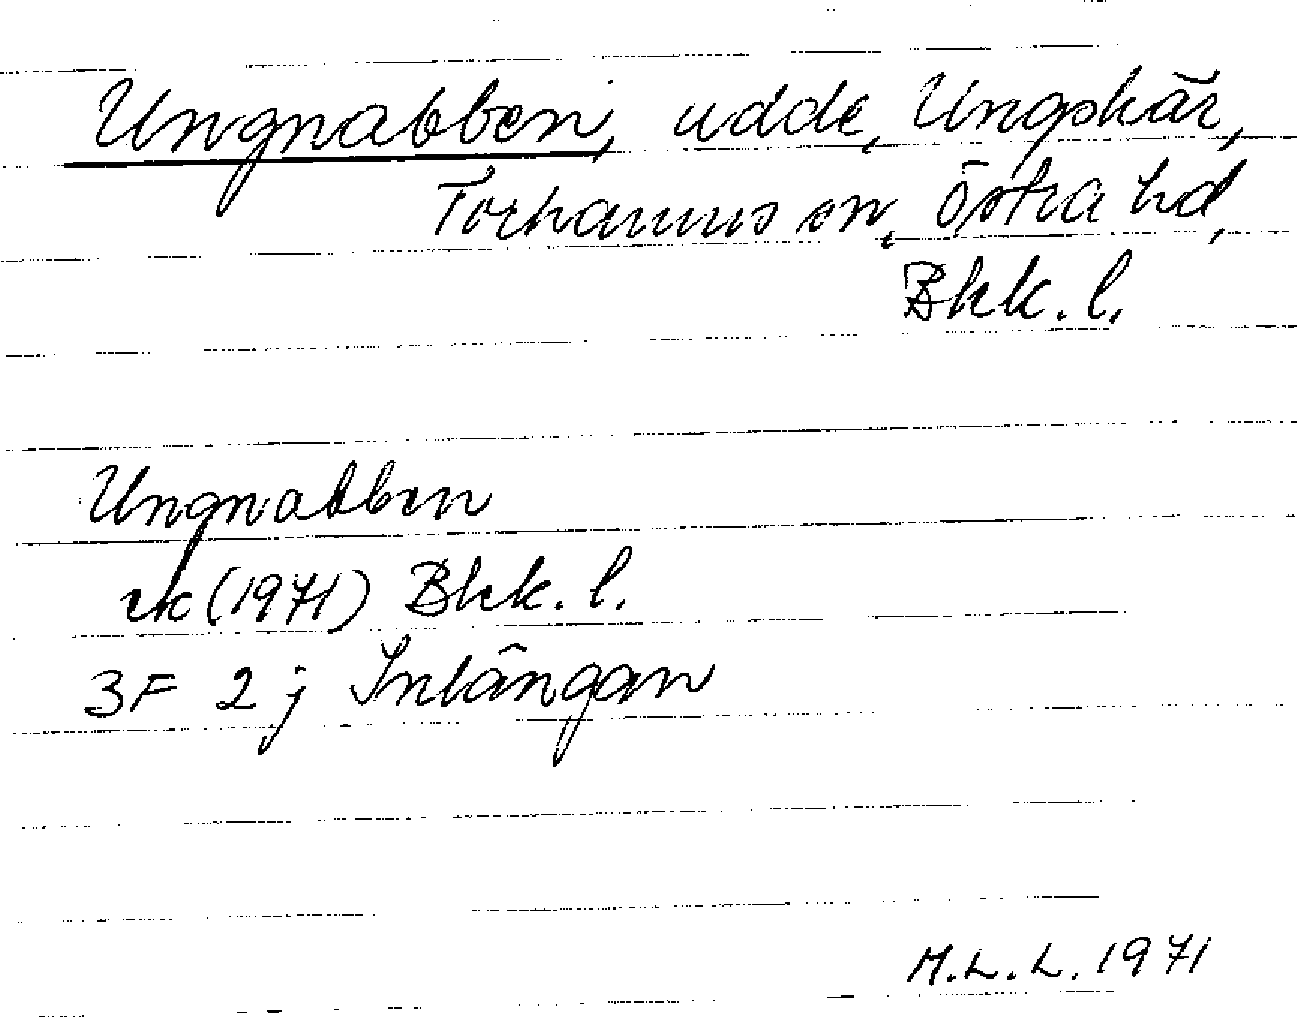 Ungnabben, udde, Ungskär,
Torhamns sn, Östra hd,
Bkk. l.
Ungnabben
ek (1971) Bkk. l.
3F 2 j Inlängan
M.L.L. 1971